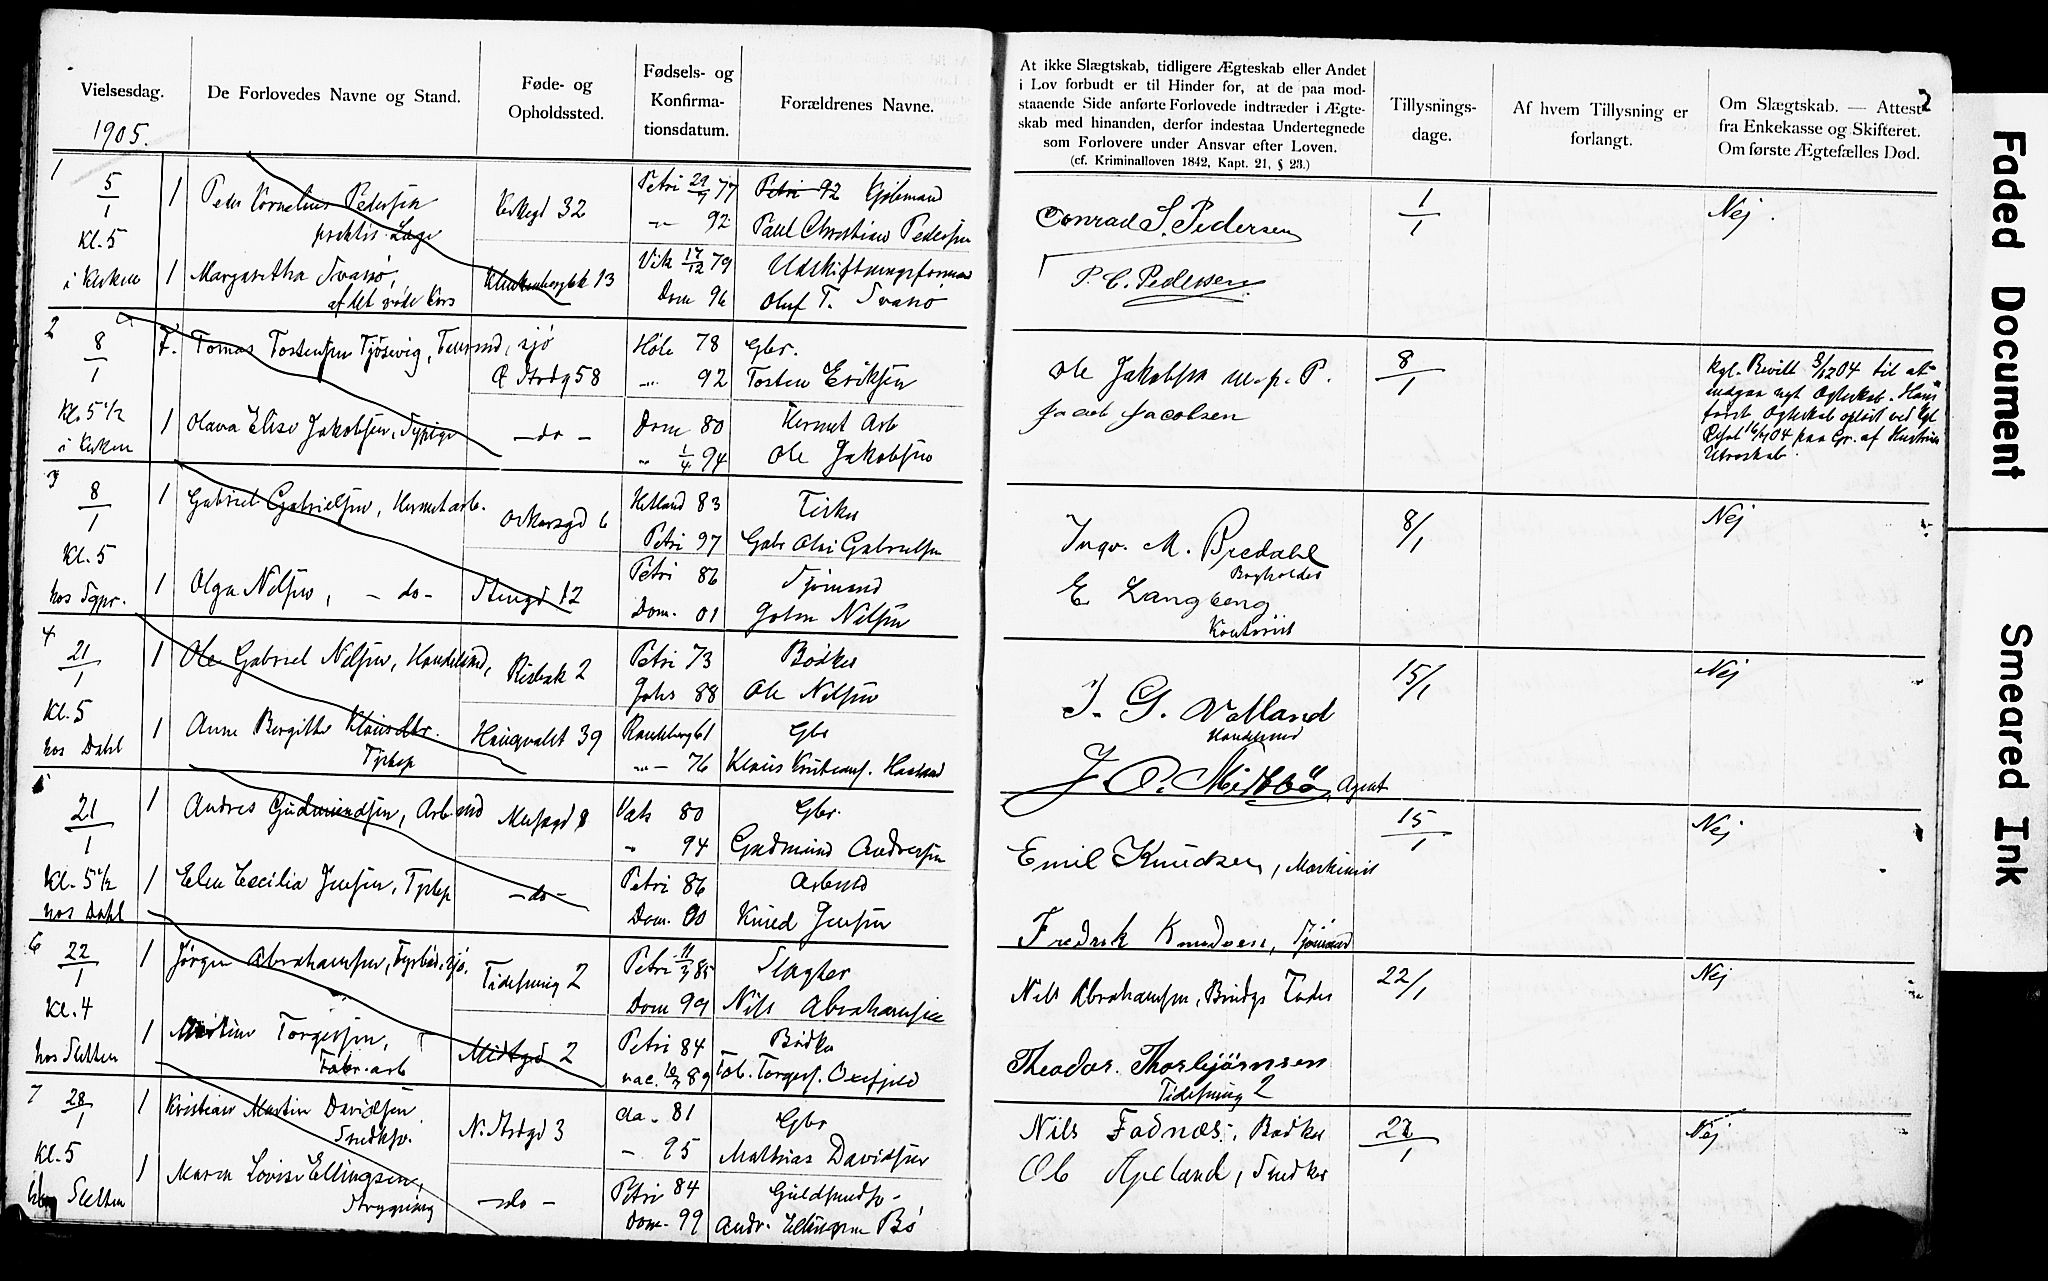 Vielsesdag.
1905.
De Forlovedes Navne og Stand.
Føde- og
Opholdssted.
Fødsels- og
Konfirma-
tionsdatum.
Forældrenes Navne.
At ikke Slægtskab, tidligere Ægteskab eller Andet
i Lov forbudt er til Hinder for, at de paa mod-
staaende Side anførte Forlovede indtræder i Ægte-
skab med hinanden, derfor indestaa Undertegnede
som Forlovere under Ansvar efter Loven.
(cf. Kriminalloven 1842, Kapt. 21, § 23.)
Tillysnings-
dage.
Af hvem Tillysning er
forlangt.
Om Slægtskab. — Attest
fra Enkekasse og Skifteret.
Om første Ægtefælles Død.
2
1
5/1 1 Peder Kornelius Pedersen Petri 29 77 Petri 92
Kirkegd 32
praktis. Læge 92 Paul Christian Pedersen
Kl. 5
i Kirken 1 Margaretha Svanø, Vik 17/12 79
af det røde Kors 13 Dom 96 Oluf T. Svanø
Conrad S. Pedersen 1/1 Nej.
P. C. Pedersen
2
8/1 F. Tomas Tostensen Tjøsevig, sjø Høle 78 Gbr.
58 92 Tosten Eriksen
Kl. 5 1/2 1 Olava Elise Jakobsen, - do - Dom 80 Hermet Arb
i Kirken " 1/4 94 Ole Jakobsen
Ole Jakobsen m. p. P. 8/1
Jacob Jacobsen
Kgl. Bevill. 04 til at
indgaa nyt Ægteskab. Hans
første Ægteskab opløst ved Kgl
04 paa Gr. af Hustrus
Utroskab.
3
8/1 1 Gabriel Gabrielsen, Hermetarb. Hetland 83 Fisker
Oskarsgd 6 Petri 97 Gabr. Olai Gabrielsen
Kl. 5
hos Sgpr. 1 Olga Nilsen, - do - Stengd 12 Petri 86 Sjømand
Dom. 01 John Nilsen
Ingv. M. Bredahl 8/1 Nej
Bogholder
E. Langberg
Kontorist
4
21/1 1 Ole Gabriel Nilsen, Handelsmd, Risbak 2 Petri 73 Bødker
Johs 88 Ole Nilsen
Kl. 5
hos Dahl 1 Anne Bergitte Klausdtr. 39 Randeberg 61 Gbr
Tjpep 76 Klaus
J. G. Valland 15/1 Nej
Handelsmd
J. O. Midbø, Agent
5
21/1 1 Andres Gudmundsen, Arb.md Musegd 8 Vats 80 Gbr.
" 94 Gudmund Andressen
Kl. 5 1/2 1 Elen Cecilia Jensen, Tjpep - do - Petri 86 Arbmd
hos Dahl Dom. 00 Knud Jensen
Emil Knudsen, Maskinist 15/1 Nej
Fredrik Knudsen, Sjømand
6
22/1 1 Jørgen Abrahamsen, Tidesmug 2 Petri 11 85 Slagter
Kl. 4 Dom 99 Nils Abrahamsen
hos Sletten 1 Torgersen, Midtgd 2 Petri 84 Bødker
Fabr.arb vac. 89 Tob. Torgers. Oxefjeld
Nils Abrahamsen, Brudgs Fader 22/1 Nej
Theodor. Thorbjørnsen
Tidesmug 2
7
28/1 1 Kristian Martin Davidsen N. Strdgd 3 do. 81 Gbr
Snedksv. 95 Mathias Davidsen
Kl. 5
Sletten 1 Maren Lovise Ellingsen, - do - Petri 84 Guldsmedsv.
Strygning Dom. 99 Andr. Ellingsen Bø
Nils Fodnæs, Bødker 22/1 Nej
Ole Apeland, Snedker
Faded Document
Smeared Ink